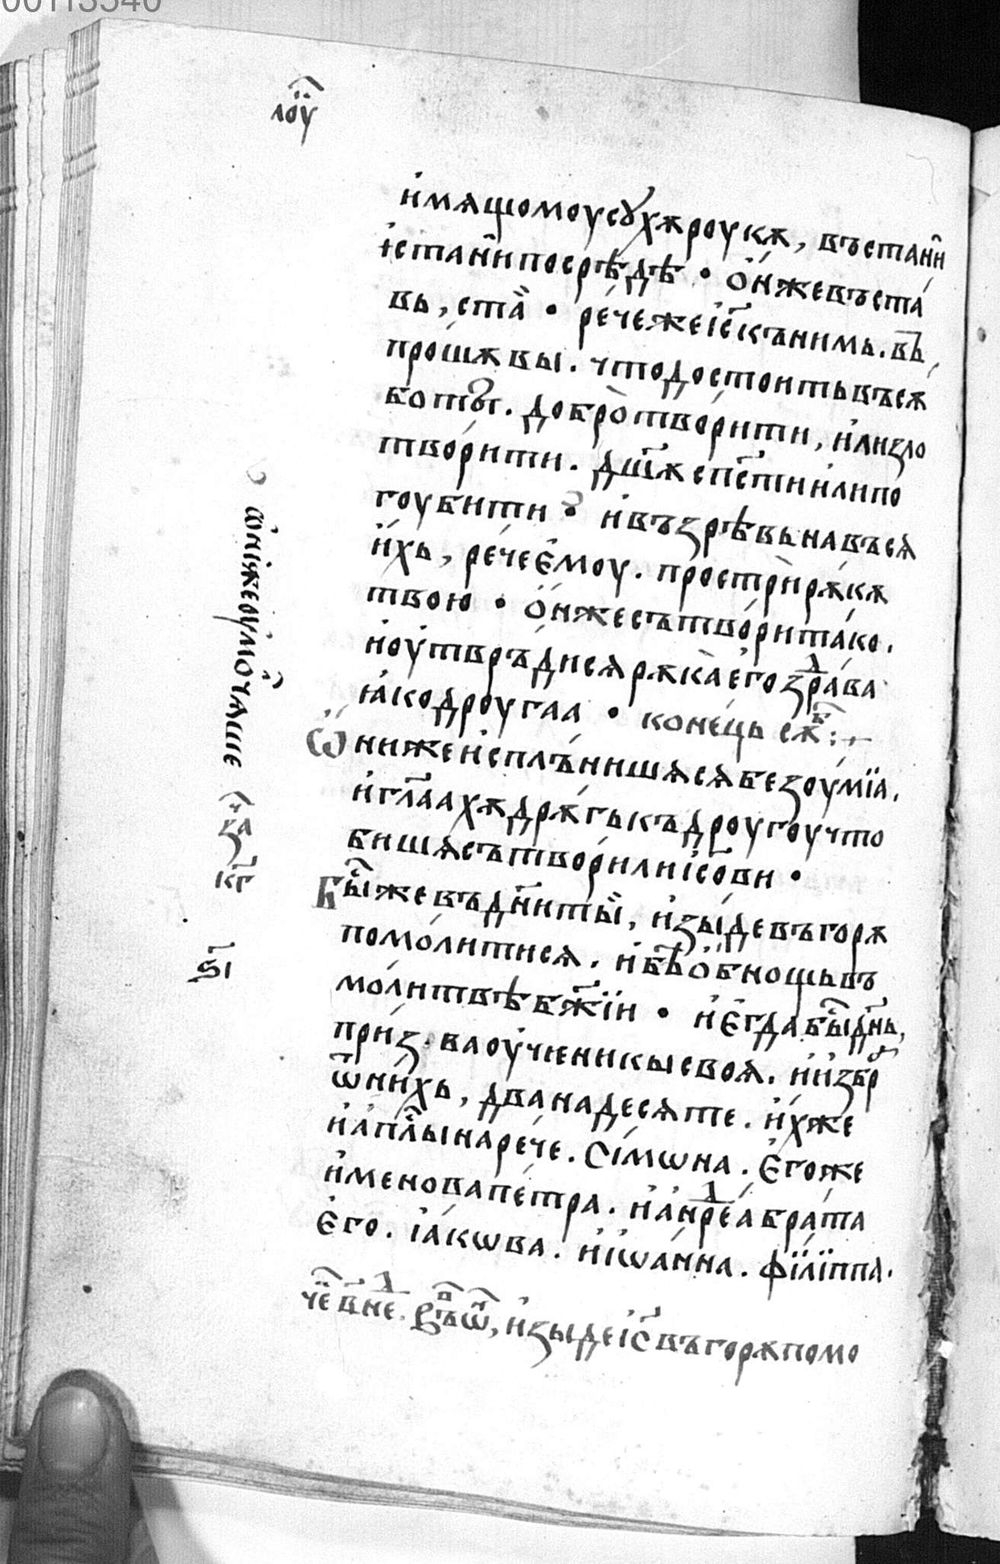 00113540
лоу҃
и҆мѧщомоусоухѫроукѫ, въстани
и҆станипосрѣдѣ · ѻ҆нжевъста
вь, ста̀ · речежеі҆с҃къни́мь. въ
прошѫвы. чтодостоитьвъсѫ
боты. добро̀творити, и҆лиꙁло
творити. дш҃ѫсп҃стиилипо
гоубити · и҆въꙁрѣвьнавъсѧ
и҆хь, речеє҆моу. простриѫрѫкѫ
твою · ѻ҆нжесътворитако.
и҆оу҆твръдисѧрѫкаєгоꙁдрава
ꙗ҆кодроугаа · конець сѫб:
Ѡ҆нижеи҆сплънишѧсѧбеꙁоумїа,
и҆гл҃аахѫдрѫгькъдроугоучто
бишѧсътворилиі҆с҃ови ·
Бы҃жевъдн҃иты̀, и҆ꙁыдевъгорѫ
помолитисѧ. и҆бѣѻ҆бнощьвъ
молитвѣбж҃їи · и҆є҆гдабы҃дн҃ь,
приꙁ.ваоу҆чиеникысвоѧ. и҆иꙁбр
ѿни́хь, дванадесѧте. и҆хже
и҆апл҃ынарече. Сімѡна. Є҆гоже
и҆менова петра. и҆андреа брата
Є҆го. і҆акѡва. и҆і҆ѡанна. філіппа.
и҆ꙁыдеі҆с҃въгорѫпомо
ѡ҆нижеоумлъчаше
ꙁа
кг҃
ѕ҃і